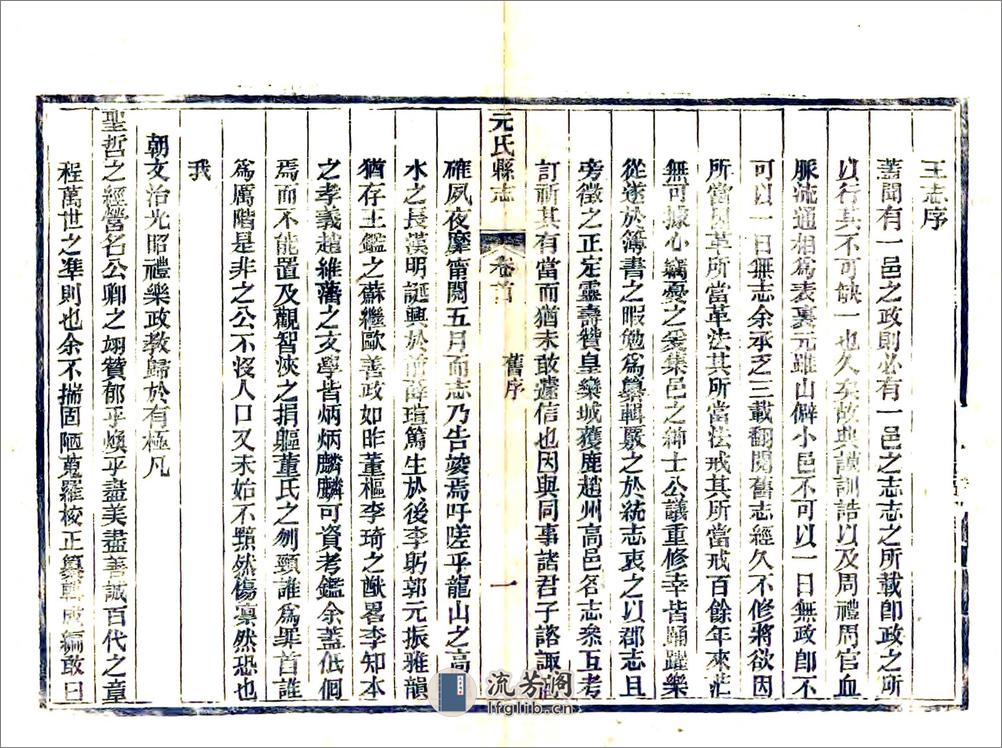 王志序
蓋聞有一邑之政則必有一邑之志志之所載卽政之所
以行其不可缺一也久矣故典謨訓誥以及周禮周官血
脈流通相爲表裏元雖山僻小邑不可以一日無政卽不
可以一日無志余承乏三載翻閱舊志經久不修將欲因
所當因革所當革法其所當法戒其所當戒百餘年來茫
無可據心竊憂之爰集邑之紳士公議重修幸皆踊躍樂
從遂於簿書之暇勉爲纂輯嚴之於統志衷之以郡志且
旁徵之正定靈壽贊皇欒城獲鹿趙州高邑各志叅互考
訂祈其有當而猶未敢遽信也因與同事諸君子諮諏
元氏縣志
卷首
舊序
一
確夙夜靡甯閱五月而志乃告竣焉吁嗟乎龍山之高
水之長漢明誕興於前薛瑄篤生於後李躬郭元振雅韻
猶存王鑑之蘇繼歐善政如昨董樞李琦之猷畧李知本
之孝義趙維藩之文學皆炳炳麟麟可資考鑑余蓋低徊
焉而不能置及觀智浹之捐軀董氏之刎頸誰爲罪首誰
爲厲階是非之公不沒人口又未始不黯然傷凛然恐也
我
朝文治光昭禮樂政教歸於有極凡
聖哲之經營名公卿之翊贊郁乎煥乎盡美盡善誠百代之章
程萬世之準則也余不揣固陋蒐羅校正纂輯成編敢曰
流芳阁
lfglib.cn